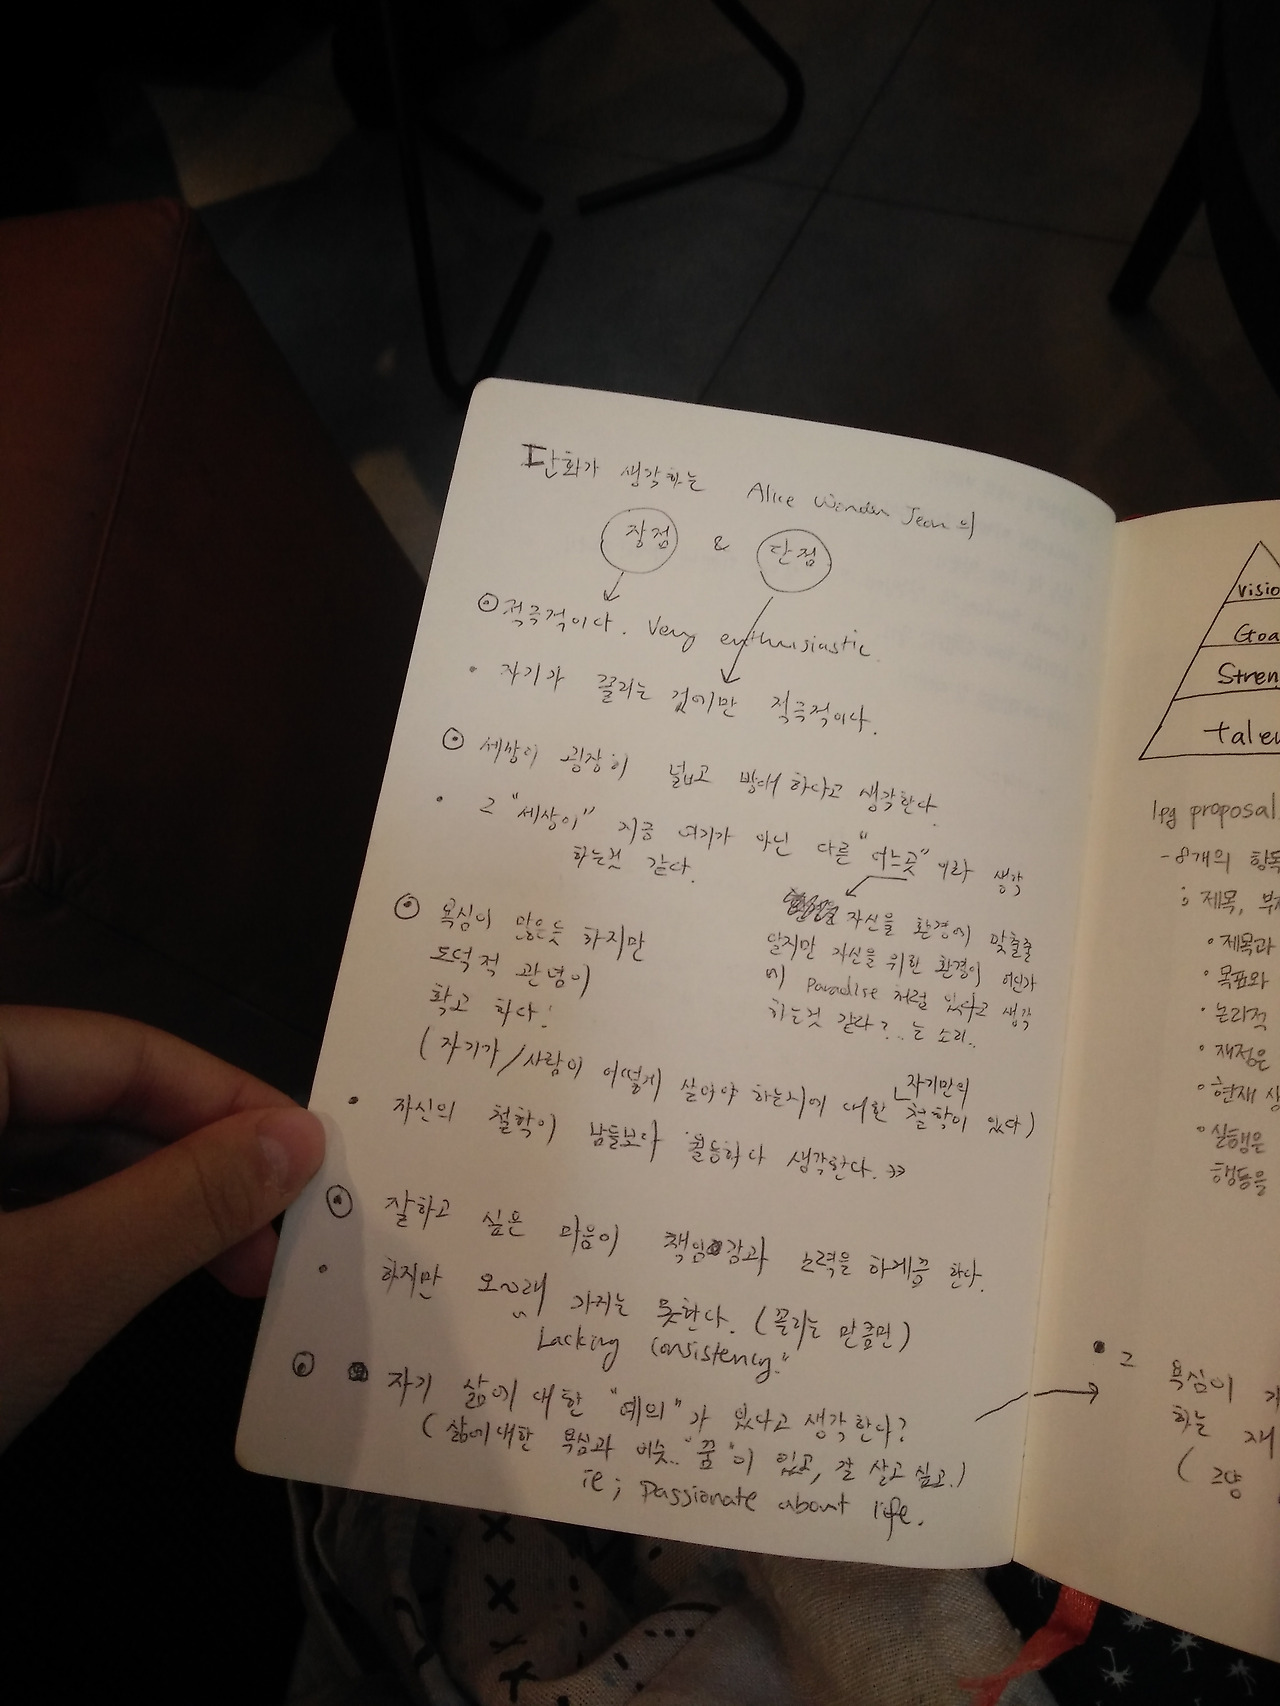 단화가 생각하는 Alice Wonder Jeon 의
장점 & 단점
적극적이다. Very enthusiastic.
자기가 끌리는 것에만 적극적이다.
세상이 굉장히 넓고 방대하다고 생각한다.
그 "세상이" 지금 여기가 아닌 다른 "어느곳" 이라 생각
하는것 같다.
자신을 환경에 맞출줄
알지만 자신을 위한 환경이 어딘가
에 paradise 처럼 있다고 생각
하는것 같다?..는 소리..
욕심이 많은듯 하지만
도덕적 관념이
확고 하다!
(자기가/사람이 어떻게 살아야 하는지에 대한 자기만의 철학이 있다)
자신의 철학이 남들보다 월등하다 생각한다.
잘하고 싶은 마음이 책임감과 노력을 하게끔 한다.
하지만 오~래 가지는 못한다. (끌리는 만큼만)
"Lacking consistency."
자기 삶에 대한 "예의"가 있다고 생각한다?
(삶에대한 욕심과 비슷.. "꿈"이 있고, 잘 살고 싶고.)
ie; passionate about life.
Visio
Goa
Stren
tale
1pg proposal
- 8개의 항목
; 제목, 부
• 제목과
• 목표와
• 논리적
• 재정은
• 현재 상
• 실행은
행동을
• 그 욕심이
하는 재
(그냥